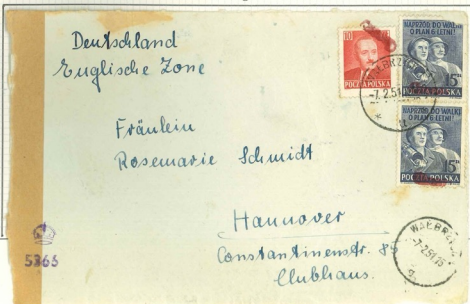 Deutschland
Englische Zone
Fräulein
Rosemarie Schmidt
Hannover
Constantinenstr. 85
Clubhaus.
5366
10
POCZTA POLSKA
NAPRZÓD DO WALKI
O PLAN 6-LETNI!
15
POCZTA POLSKA
NAPRZÓD DO WALKI
O PLAN 6-LETNI!
15
POCZTA POLSKA
WAŁBRZYCH
-7.2.51
WAŁBRZYCH
-7.2.51.16